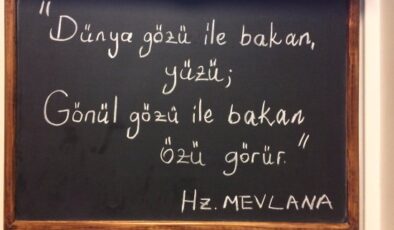 "Dünya gözü ile bakan,
yüzü;
Gönül gözü ile bakan
özü görür."
Hz. MEVLANA